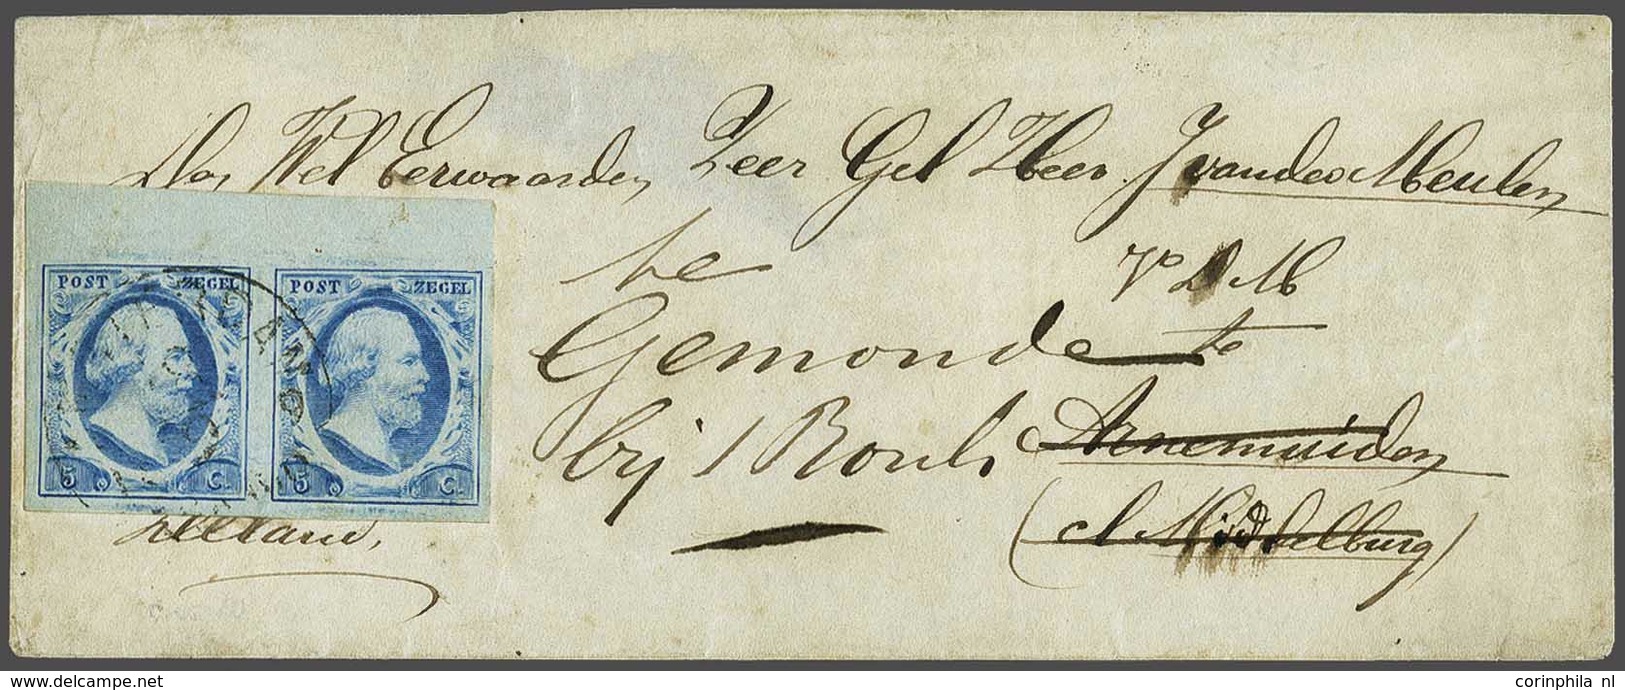 Den Wel Eerwaarden Zeer Gel Heer J van der Meulen
te
V D M
Gemonde te
bij Arnemuiden
(Middelburg)
Zeeland,
POST ZEGEL POST ZEGEL
5 C. 5 C.
delcampe.net
corinphila nl